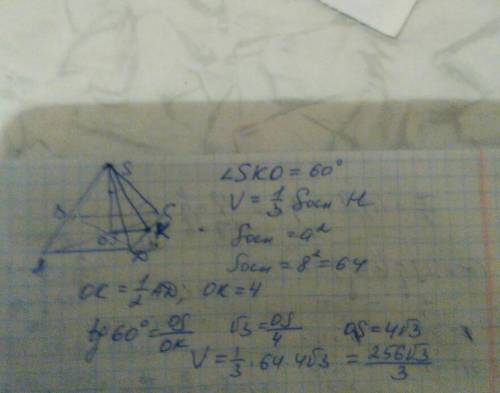 S
∠SKO = 60°
V = 1/3 Sосн H
C
K
O
Sосн = a²
Sосн = 8² = 64
OK = 1/2 AD; OK = 4
tg 60° = OS/OK √3 = OS/4 OS = 4√3
V = 1/3 · 64 · 4√3 = 256√3/3